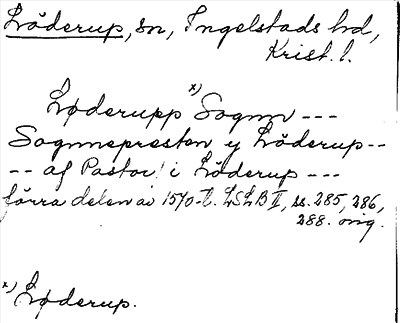 Löderup, sn, Ingelstads hd,
Krist. l.
Løderupp x) Sognn ---
Sognnepresten y Löderup--
-- af Pastor i Löderup ---
förra delen av 1570-t. LSLB II, ss. 285, 286,
288. orig.
x) Løderup.